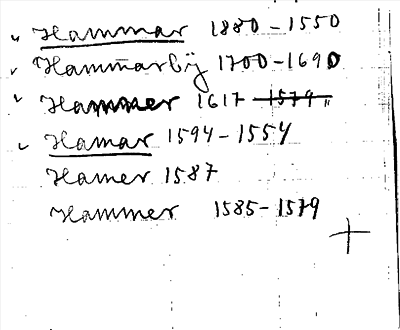 Hammar 1880-1550
Hammarbÿ 1700-1690
Hammer 1617 1579 "
Hamar 1594-1554
Hamer 1587
Hammer 1585-1579